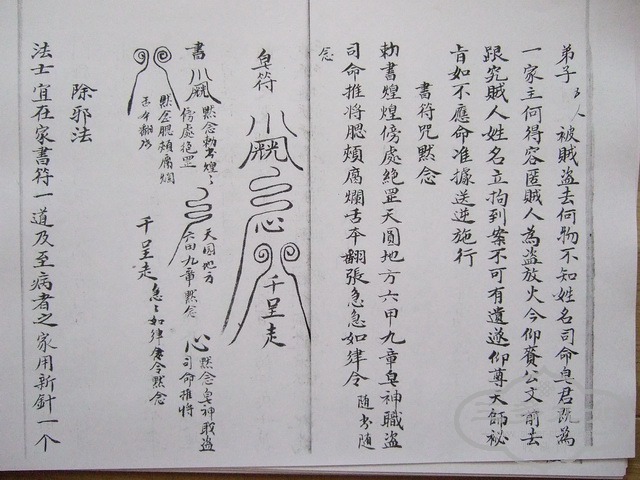 弟子 厶人 被賊盗去何物不知姓名司命皂君既為
一家主何得容匿賊人為盗放火今仰賫公文前去
跟究賊人姓名立拘到案不可有遺遂仰尊天師祕
旨如不應命准據送逆施行
書符咒默念
勅書煌煌傍處絶罡天圓地方六甲九章皂神職盗
司命推将腮頰腐爛舌本翻張急急如律令 随书随
念
皂符
心
千呈走
書
默念勅书煌々
傍處绝罡
天圓地方
六甲九章默念
心
默念皂神職盗
司命推将
默念腮頰腐爛
舌本翻張
千呈走
急々如律令默念
除邪法
法士宜在家書符一道及至病者之家用新針一个